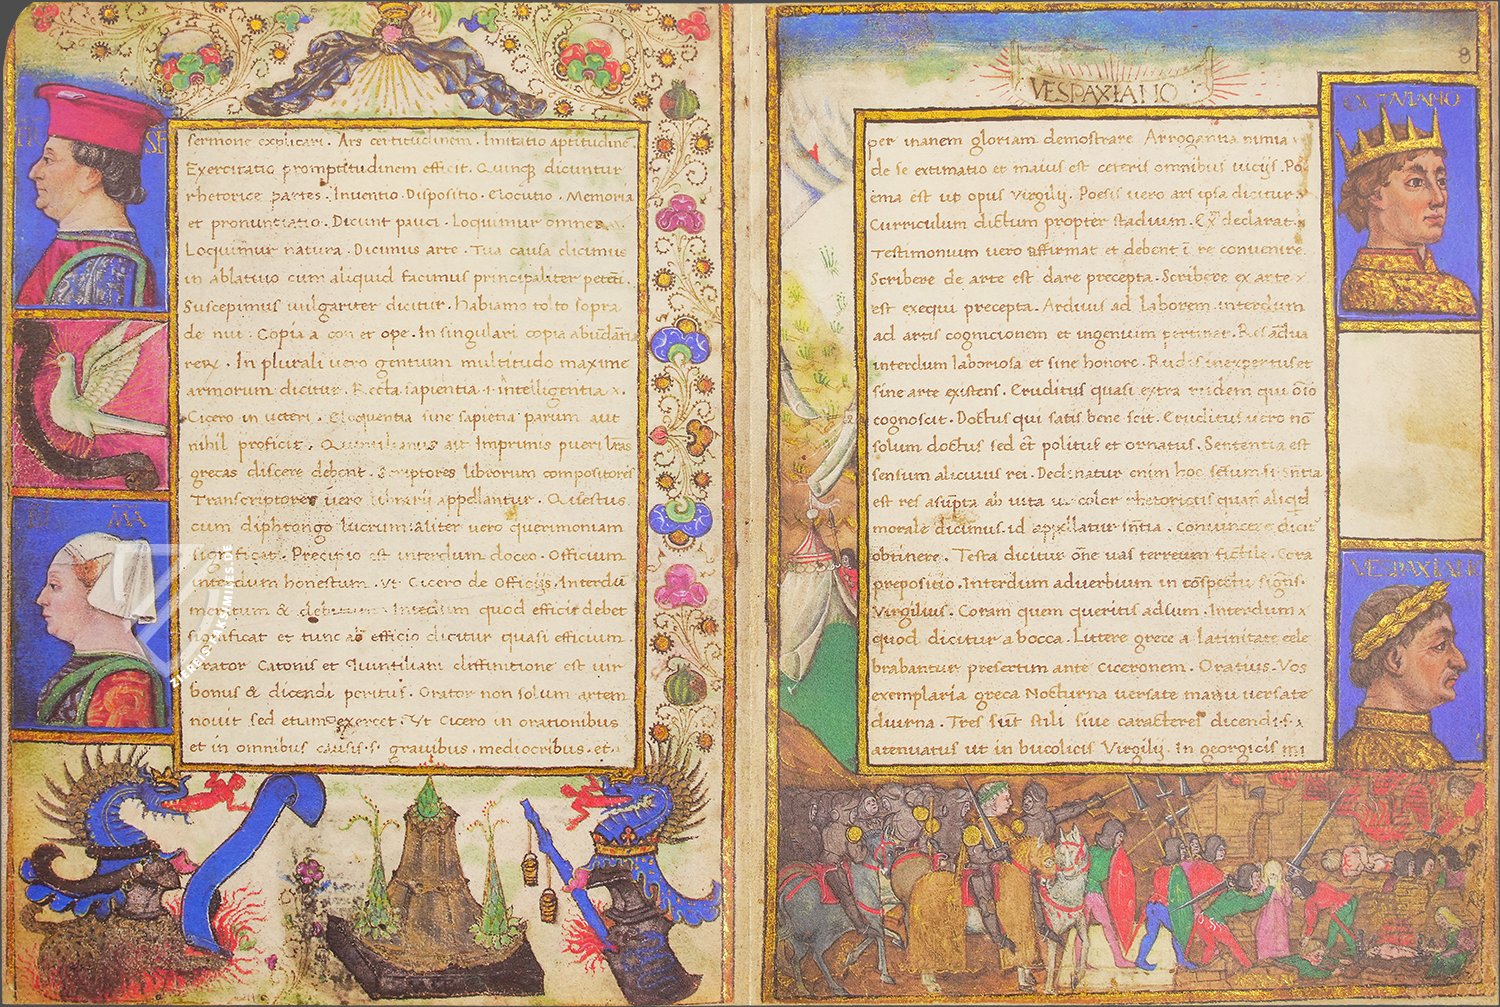 sermone explicari . Ars certitudinem . Imitatio aptitudinē
Exercitatio promptitudinem efficit . Quinq; dicuntur
rhetorice partes . Inventio . Dispositio . Elocutio . Memoria
et pronunciatio . Dicunt pauci . Loquimur omnes
Loquimur natura . Dicimus arte . Tua causa dicimus
in ablativo cum aliquid facimus principaliter
Suscepimus vulgariter dicitur . habiamo tolto sopra
de nui . Copia a con et ope . In singulari copia
In plurali vero gentium multitudo maxime
armorum dicitur . Recta sapientia . intelligentia
Cicero in veteri . Eloquentia sine sapiētia parum aut
nihil proficit . Quintilianus ait Imprimis pueri lr̄as
grecas discere debent . Scriptores librorum compositores
Transcriptores vero librarii appellantur . Questus
cum diphtongo lucrum aliter vero querimoniam
significat . Precipio est interdum doceo . Officium
interdum honestum . Ut Cicero de Officijs . Interdū
meritum & . Interdum quod efficit debet
significat et tunc ab efficio dicitur quasi efficium
Orator Catonis et Quintiliani diffinitione est vir
bonus & dicendi peritus . Orator non solum artem
novit sed etiam exercet . Ut Cicero in orationibus
et in omnibus causis . s . gravibus . mediocribus . et
VESPAXIANO
8
per inanem gloriam demostrare Arrogantia nimia
de se extimatio et maius est ceteris omnibus vicijs . Po
ema est ut opus Virgilij . Poesis vero ars ipsa dicitur
Curriculum dictum propter stadium . declarat
Testimonium vero affirmat et debent ī re convenire
Scribere de arte est dare precepta . Scribere ex arte
est exequi precepta . Arduus ad laborem . interdum
ad artis cognicionem et ingenium pertinet . Res
interdum laboriosa et sine honore . Rudis inexpertus et
sine arte existens . Eruditus quasi extra rudem qui ōīo
cognoscit . Doctus qui satis bene scit . Eruditus vero nō
solum doctus sed et politus et ornatus . Sententia est
sensum alicuius rei . enim hoc
est res ab vita color
morale dicimus . id . Convincere
obtinere . Testa dicitur ōne vas terreum fictile . Cora
preposicio . Interdum adverbium in
Virgilius . Coram quem queritis adsum . Interdum
quod dicitur a bocca . Littere grece a latinitate cele
brabantur presertim ante ciceronem . Oratius . Vos
exemplaria greca Nocturna versate manu versate
diurna . Tres sunt stili sive caracteres dicendi .
atenuatus ut in bucolicis Virgilij . In georgicis mi
OCTAVIANO
VESPAXIANO
ZIEREIS FAKSIMILES.DE